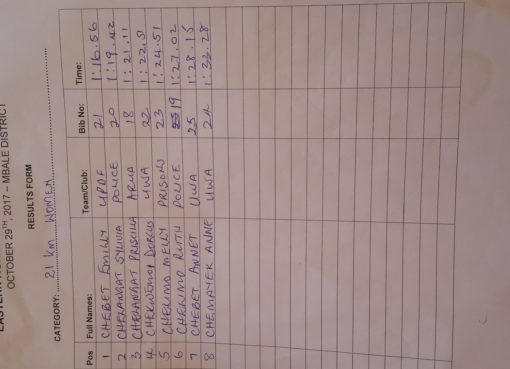 OCTOBER 29TH, 2017 – MBALE DISTRICT
RESULTS FORM
CATEGORY: 21 km WOMEN
Pos Full Names: Team/Club: Bib No: Time:
1 CHEBET EMILLY UPDF 21 1:16.56
2 CHELANGAT SYLIVIA POLICE 20 1:19.42
3 CHELANGAT PRISCILLA ARUA 18 1:21.11
4 CHEKWEMOI DORCUS UWA 22 1:22.51
5 CHELIMO MELLY PRISONS 23 1:24.51
6 CHELIMO RUTH POLICE 19 1:27.02
7 CHEBET ANNET UWA 25 1:28.15
8 CHEMAYEK ANNE UWA 24 1:33.28